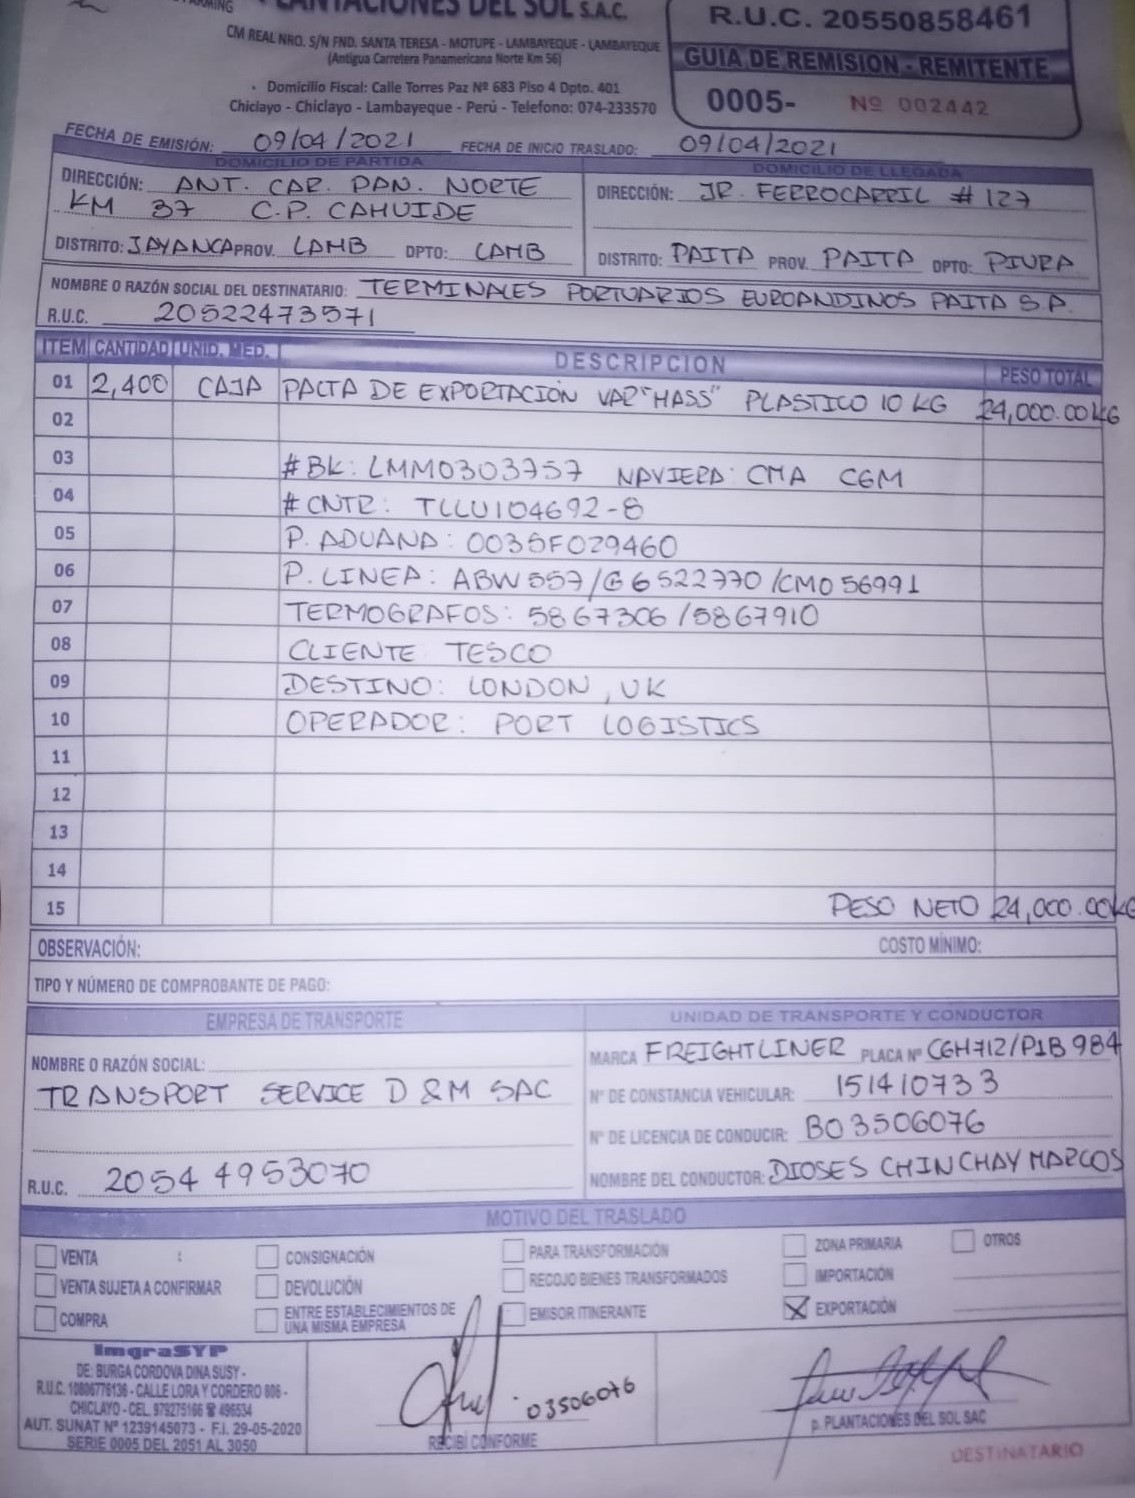 PLANTACIONES DEL SOL S.A.C.
CM REAL NRO. S/N FND. SANTA TERESA - MOTUPE - LAMBAYEQUE - LAMBAYEQUE
(Antigua Carretera Panamericana Norte Km 56)
Domicilio Fiscal: Calle Torres Paz Nº 683 Piso 4 Dpto. 401
Chiclayo - Chiclayo - Lambayeque - Perú - Telefono: 074-233570
R.U.C. 20550858461
GUIA DE REMISION - REMITENTE
0005- Nº 002442
FECHA DE EMISIÓN: 09/04/2021 FECHA DE INICIO TRASLADO: 09/04/2021
DOMICILIO DE PARTIDA
DIRECCIÓN: ANT. CAR. PAN. NORTE
KM 37 C.P. CAHUIDE
DISTRITO: JAYANCA PROV. LAMB DPTO: LAMB
DOMICILIO DE LLEGADA
DIRECCIÓN: JR. FERROCARRIL # 127
DISTRITO: PAITA PROV. PAITA DPTO: PIURA
NOMBRE O RAZÓN SOCIAL DEL DESTINATARIO: TERMINALES PORTUARIOS EUROANDINOS PAITA S.A.
R.U.C. 20522473571
ITEM CANTIDAD UNID. MED. DESCRIPCION PESO TOTAL
01 2,400 CAJA PALTA DE EXPORTACIÓN VAR "HASS" PLASTICO 10 KG 24,000.00 KG
02
03 #BK: LMM0303757 NAVIERA: CMA CGM
04 #CNTR: TLLU104692-8
05 P. ADUANA: 0035F029460
06 P. LINEA: ABW557/G6522770/CMO56991
07 TERMOGRAFOS: 5867306/5867910
08 CLIENTE TESCO
09 DESTINO: LONDON, UK
10 OPERADOR: PORT LOGISTICS
11
12
13
14
15 PESO NETO 24,000.00KG
OBSERVACIÓN: COSTO MÍNIMO:
TIPO Y NÚMERO DE COMPROBANTE DE PAGO:
EMPRESA DE TRANSPORTE
NOMBRE O RAZÓN SOCIAL:
TRANSPORT SERVICE D & M SAC
R.U.C. 20544953070
UNIDAD DE TRANSPORTE Y CONDUCTOR
MARCA FREIGHTLINER PLACA Nº CGH712/P1B984
Nº DE CONSTANCIA VEHICULAR: 151410733
Nº DE LICENCIA DE CONDUCIR: B03506076
NOMBRE DEL CONDUCTOR: DIOSES CHINCHAY MARCOS
MOTIVO DEL TRASLADO
VENTA : CONSIGNACIÓN PARA TRANSFORMACIÓN ZONA PRIMARIA OTROS
VENTA SUJETA A CONFIRMAR DEVOLUCIÓN RECOJO BIENES TRANSFORMADOS IMPORTACIÓN
COMPRA ENTRE ESTABLECIMIENTOS DE UNA MISMA EMPRESA EMISOR ITINERANTE X EXPORTACIÓN
ImgraSYP
DE: BURGA CORDOVA DINA SUSY -
R.U.C. 10806776136 - CALLE LORA Y CORDERO 806 -
CHICLAYO - CEL. 979275166 ☎ 496534
AUT. SUNAT Nº 1239145073 - F.I. 29-05-2020
SERIE 0005 DEL 2051 AL 3050
03506076
RECIBÍ CONFORME
p. PLANTACIONES DEL SOL SAC
DESTINATARIO